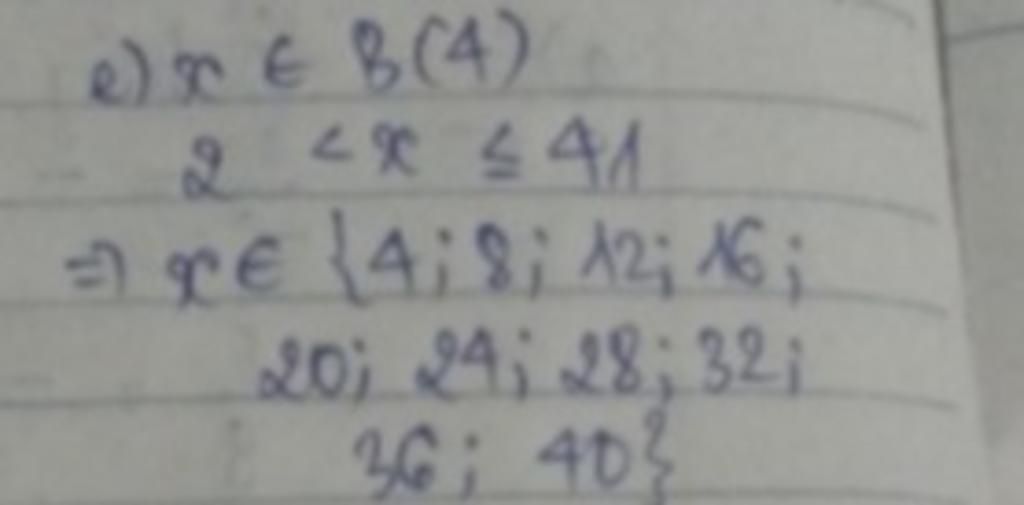 e) x ∈ B(4)
2 < x ≤ 41
⇒ x ∈ {4; 8; 12; 16;
20; 24; 28; 32;
36; 40}